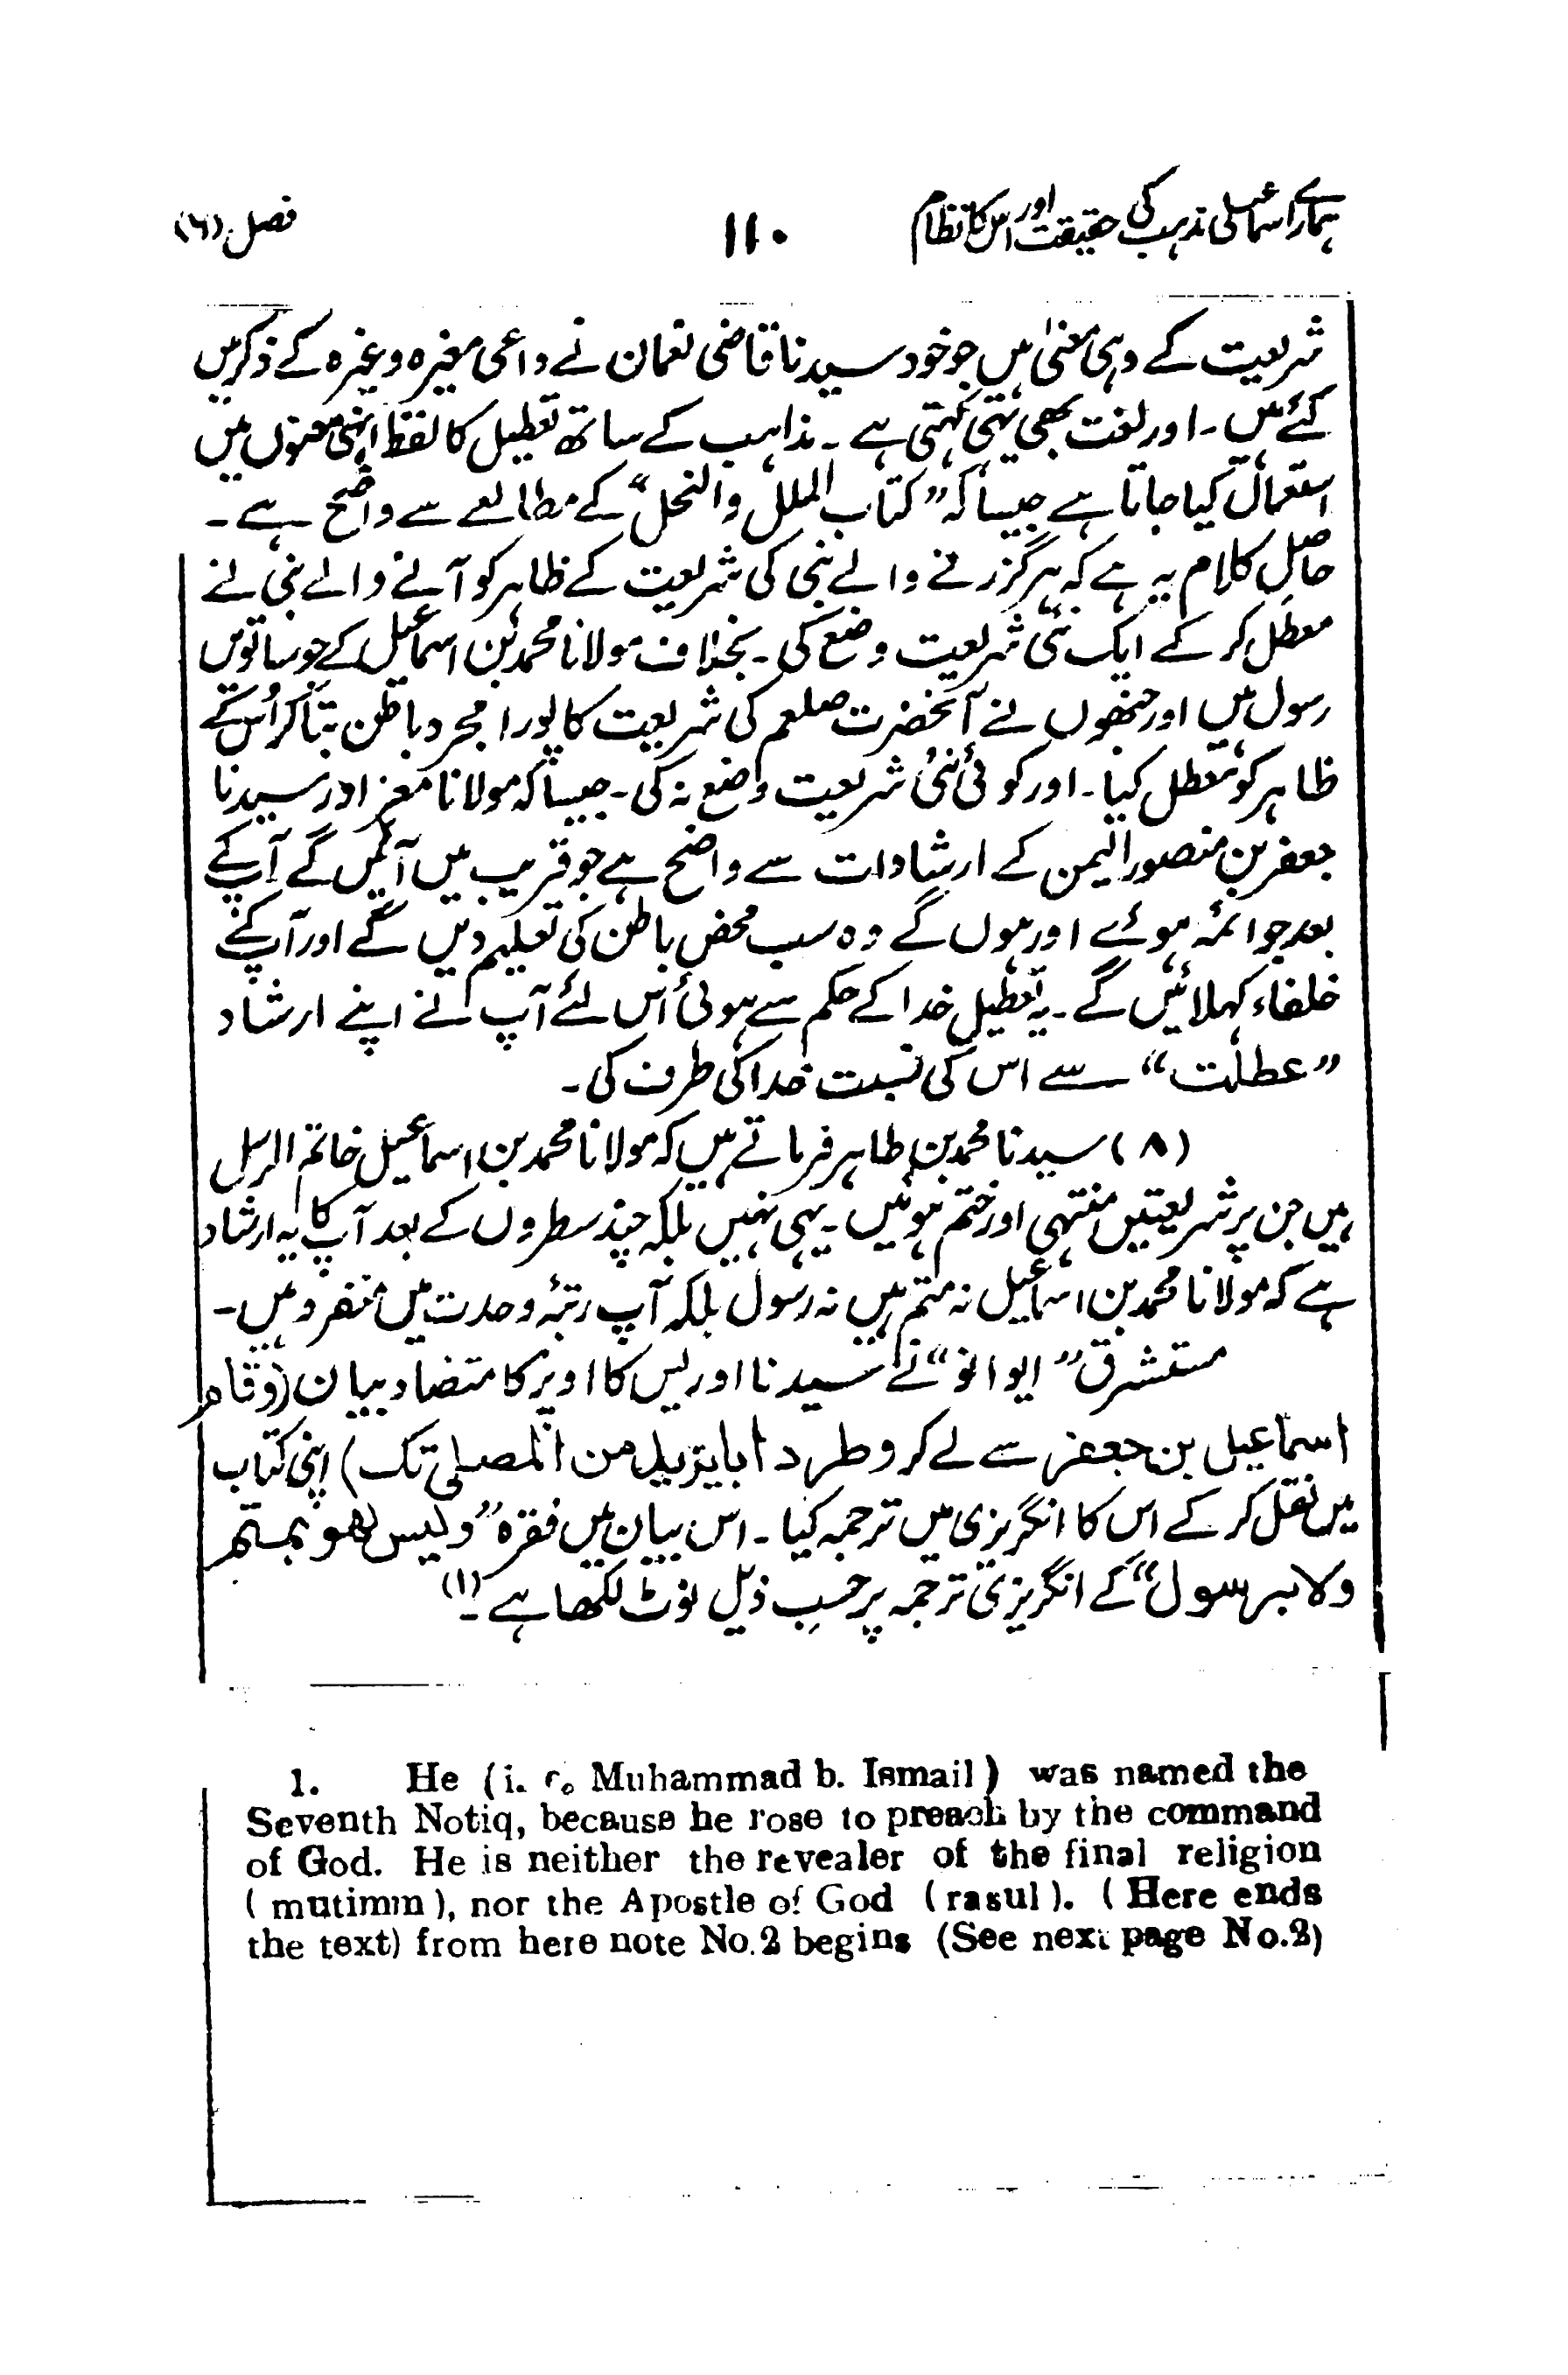 ہمارے اسماعیلی مذہب کی حقیقت اور اس کا نظام
۱۱۰
فصل (۶)
شریعت کے وہی معنیٰ ہیں جو خود سیدنا قاضی نعمان نے داعی مغیرہ وغیرہ کے ذکر میں
کئے ہیں۔ اور لغت بھی یہی کہتی ہے۔ مذاہب کے ساتھ تعطیل کا لفظ انہی معنوں میں
استعمال کیا جاتا ہے جیسا کہ ”کتاب الملل والنحل“ کے مطالعے سے واضح ہے۔
حاصل کلام یہ ہے کہ ہر گزرنے والے نبی کی شریعت کے ظاہر کو آنے والے نبی نے
معطل کر کے ایک نئی شریعت وضع کی۔ بخلاف مولانا محمد بن اسماعیل کے جو ساتویں
رسول ہیں اور جنھوں نے آنحضرت صلعم کی شریعت کا پورا مجرد باطن بتا کر اُس کے
ظاہر کو معطل کیا۔ اور کوئی نئی شریعت وضع نہ کی۔ جیسا کہ مولانا معز اور سیدنا
جعفر بن منصور الیمن کے ارشادات سے واضح ہے جو قریب میں آئیں گے آپ کے
بعد جو ائمہ ہوئے اور ہوں گے وہ سب محض باطن کی تعلیم دیں گے اور آپ کے
خلفاء کہلائیں گے۔ یہ تعطیل خدا کے حکم سے ہوئی اس لئے آپ نے اپنے ارشاد
”عطلت“ سے اس کی نسبت خدا کی طرف کی۔
(۸) سیدنا محمد بن طاہر فرماتے ہیں کہ مولانا محمد بن اسماعیل خاتم الرسل
ہیں جن پر شریعتیں منتہی اور ختم ہوئیں۔ یہی نہیں بلکہ چند سطروں کے بعد آپ کا یہ ارشاد
ہے کہ مولانا محمد بن اسماعیل نہ متم ہیں نہ رسول بلکہ آپ رتبۂ وحدت میں منفرد ہیں۔
مستشرق ”ایوانو“ نے سیدنا ادریس کا اوپر کا متضاد بیان (وقام
اسماعیل بن جعفر سے لے کر وطرد ابا یزید من المصلی تک) اپنی کتاب
میں نقل کر کے اس کا انگریزی میں ترجمہ کیا۔ اس بیان میں فقرہ ”ولیس ھو بمتم
ولا برسول“ کے انگریزی ترجمہ پر حسبِ ذیل نوٹ لکھا ہے۔(۱)
1. He (i. e. Muhammad b. Ismail) was named the
Seventh Notiq, because he rose to preach by the command
of God. He is neither the revealer of the final religion
( mutimm ), nor the Apostle of God ( rasul ). ( Here ends
the text) from here note No.2 begins (See next page No.2)